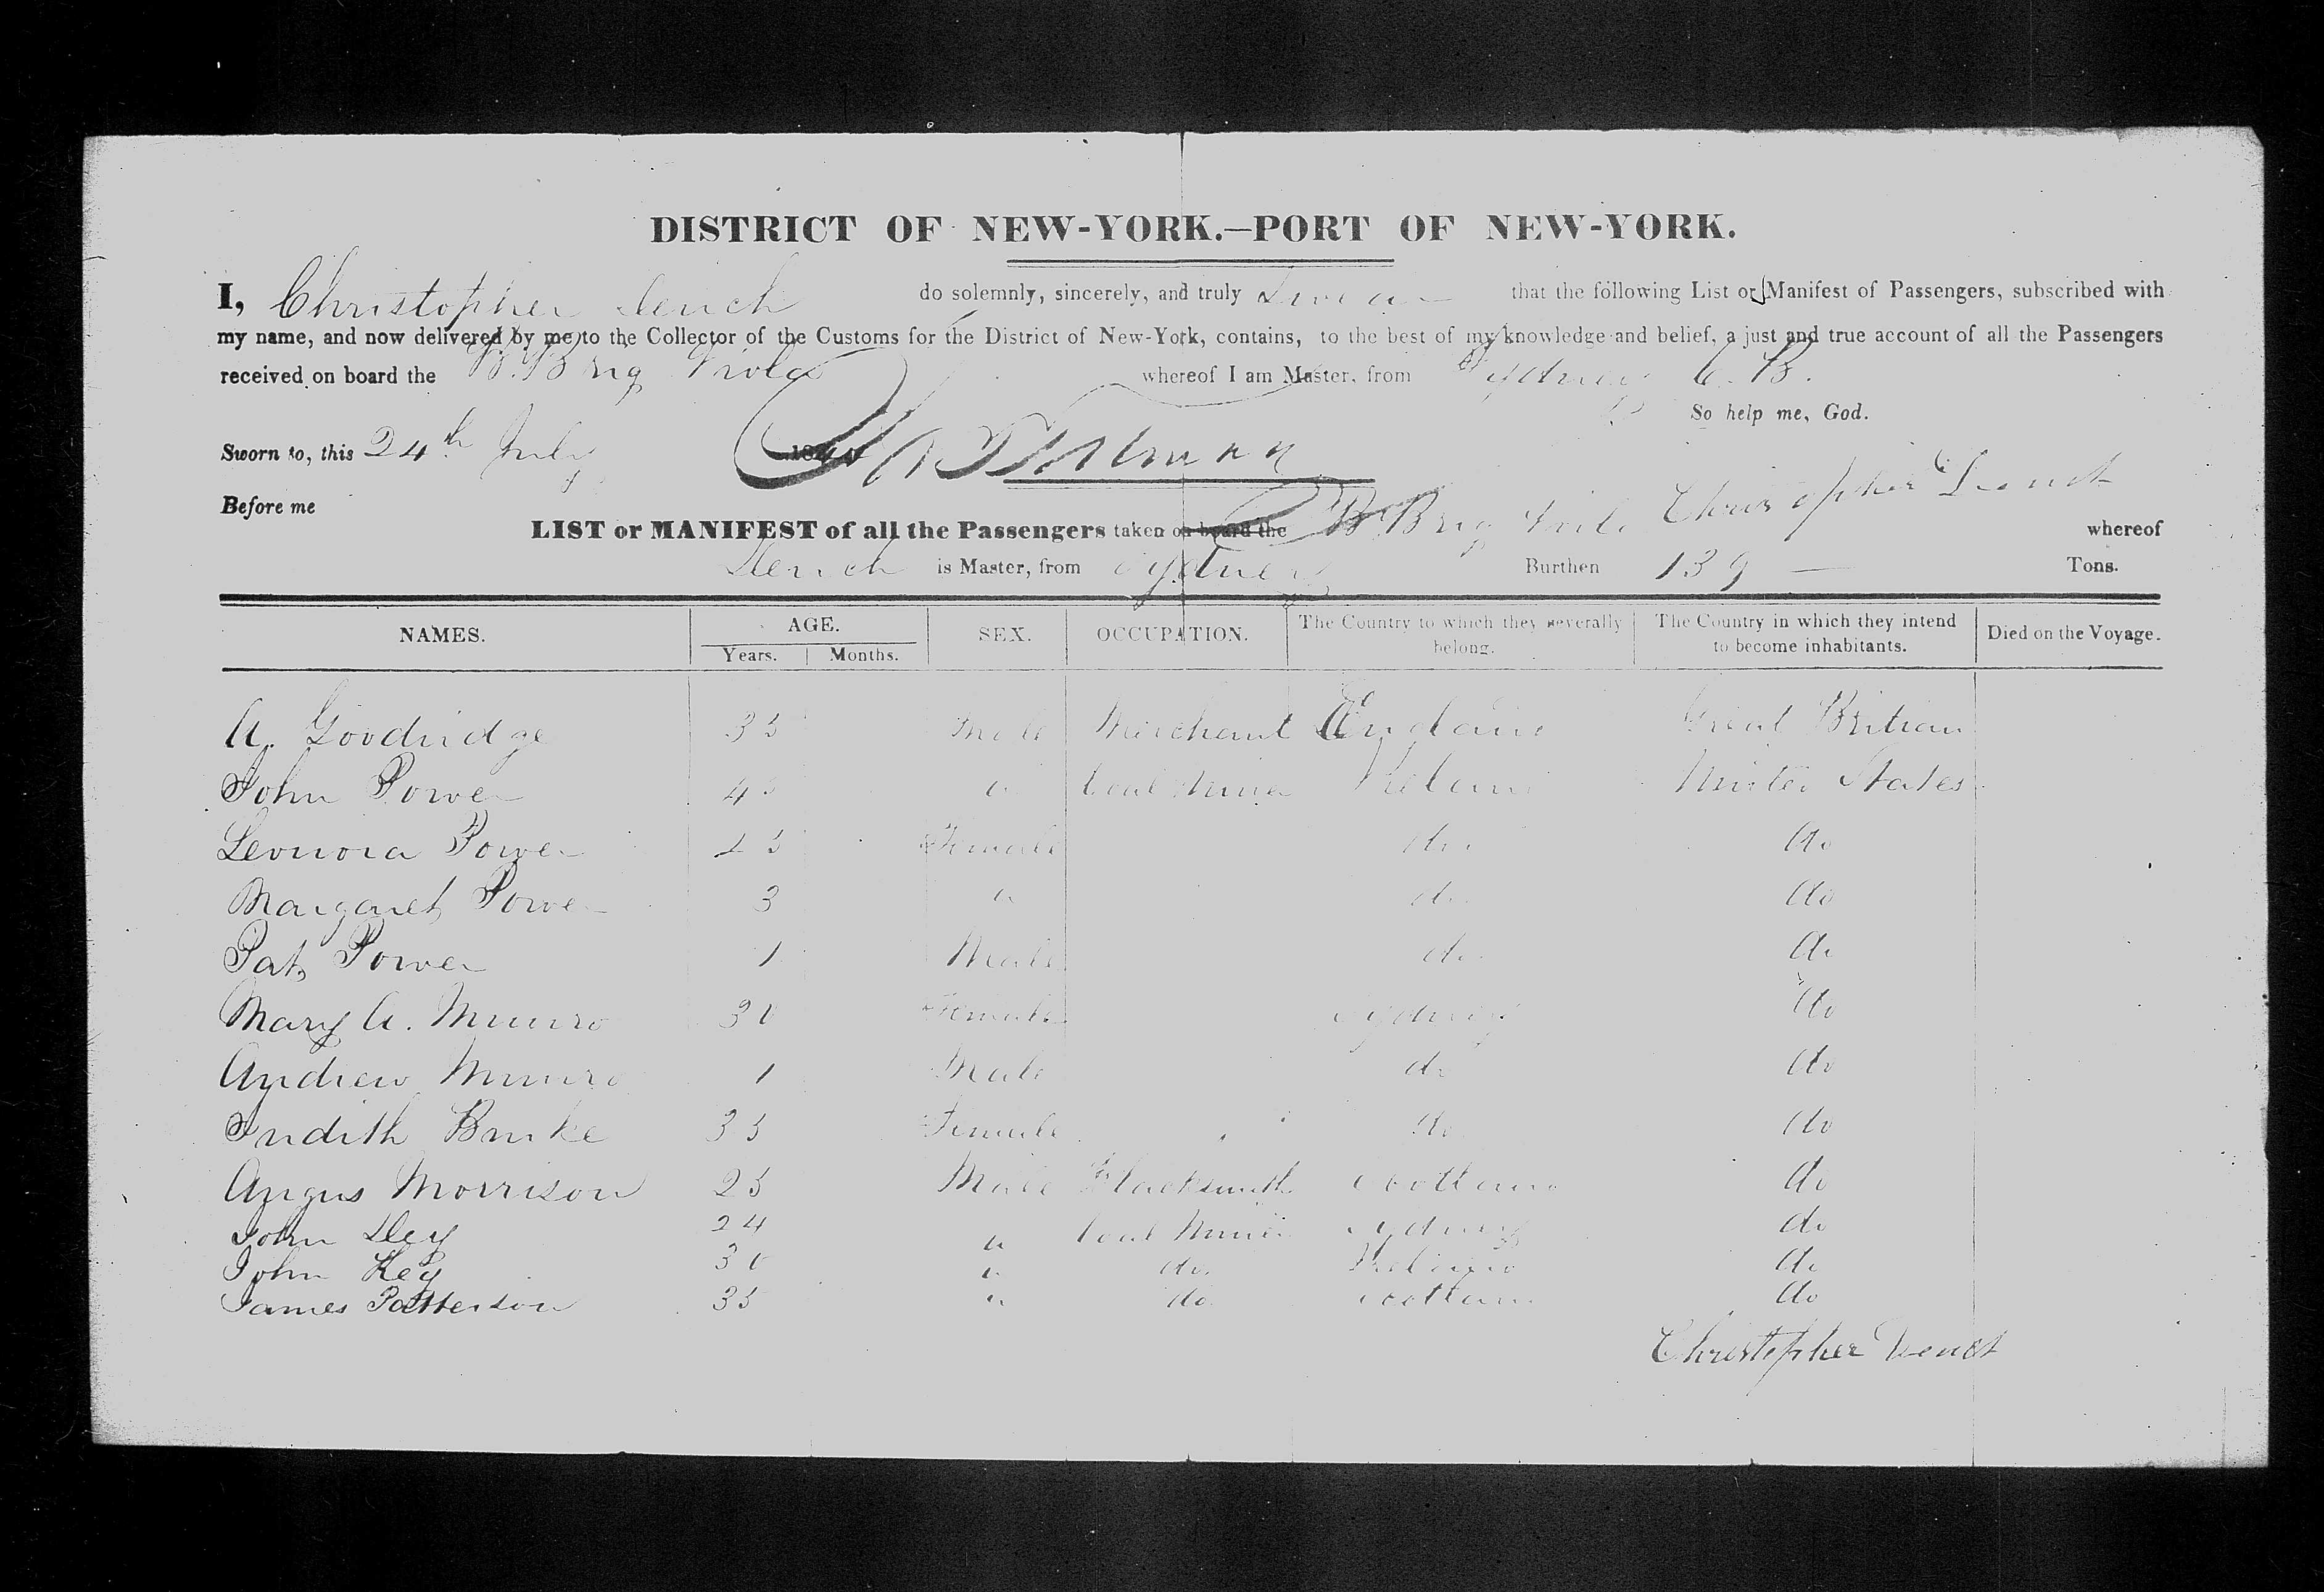 DISTRICT OF NEW-YORK.—PORT OF NEW-YORK.
I, Christopher do solemnly, sincerely, and truly Swear that the following List or Manifest of Passengers, subscribed with
my name, and now delivered by me to the Collector of the Customs for the District of New-York, contains, to the best of my knowledge and belief, a just and true account of all the Passengers
received on board the B. Brig Viola whereof I am Master, from Sydney C.B.
So help me, God.
Sworn to, this 24th July 184
Before me
Christopher
LIST or MANIFEST of all the Passengers taken on board the B. Brig Viola whereof
is Master, from Sydney Burthen 139 — Tons.
NAMES. AGE. SEX. OCCUPATION. The Country to which they severally belong. The Country in which they intend to become inhabitants. Died on the Voyage.
Years. Months.
A. Goodridge 35 Male Merchant Great Britian
John Power 45 " Coal Miner Ireland United States
Leonora Power 25 Female do do
Margaret Power 3 " do do
Pat Power 1 Male do do
Mary A. Munro 30 Female Sydney do
Andrew Munro 1 Male do do
Judith Burke 35 Female do do
Angus Morrison 25 Male Blacksmith Scotland do
John Dey 24 " Coal Miner Sydney do
John Key 30 " do Ireland do
James Patterson 35 " do Scotland do
Christopher